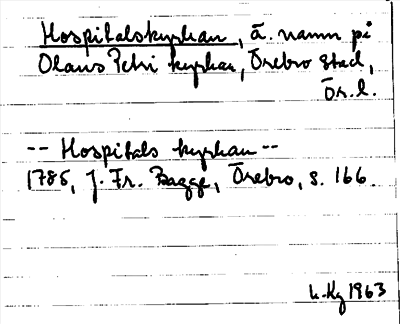 Hospitalskyrkan, ä. namn på
Olaus Petri kyrka, Örebro stad,
Ör.l.
-- Hospitals kyrkan --
1785, J. Fr. Bagge, Örebro, s. 166.
1963